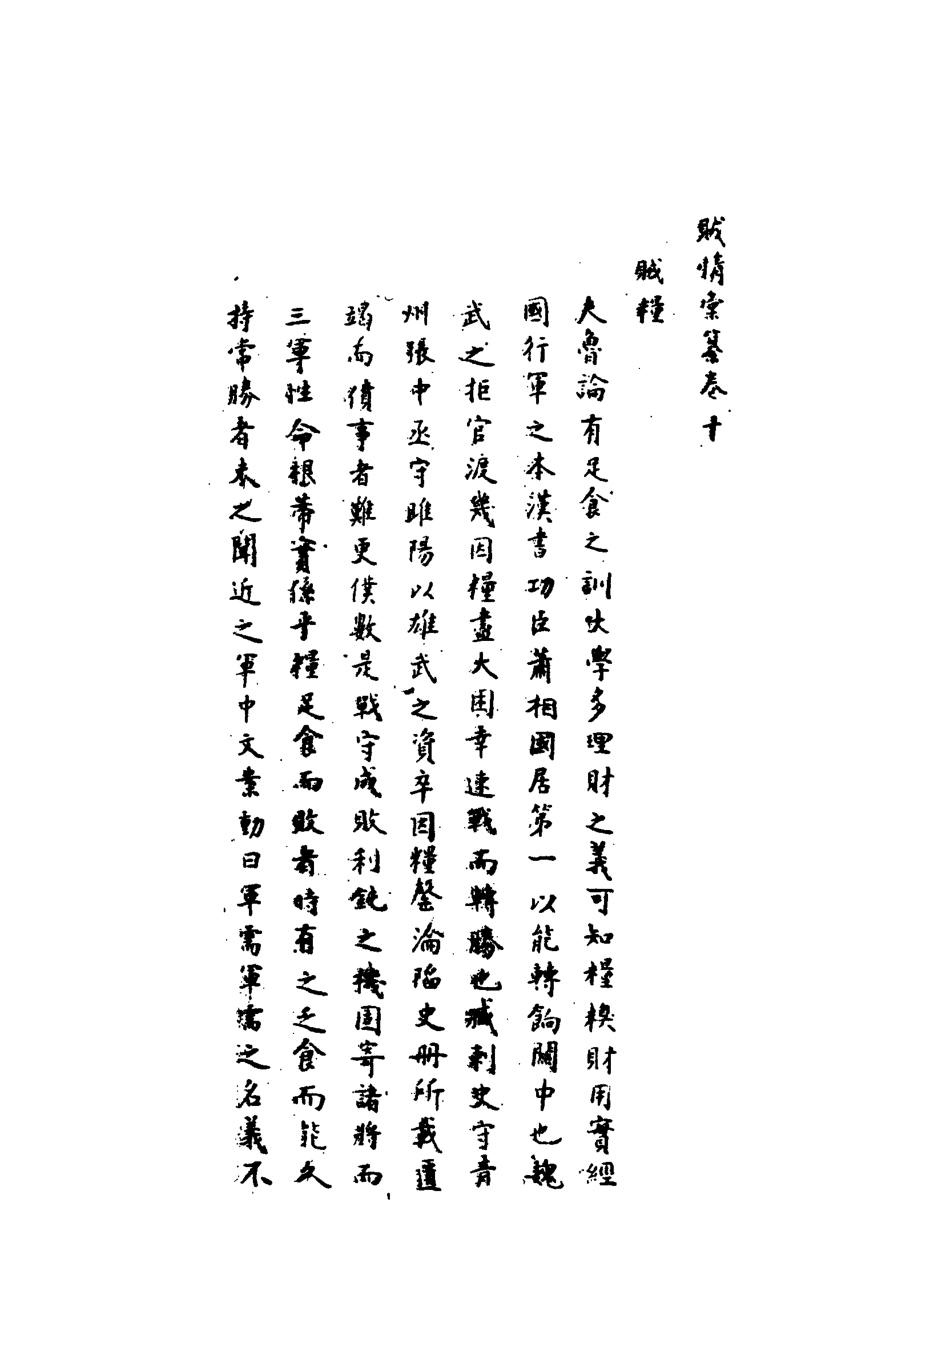 賊情彙纂卷十
賊糧
夫魯論有足食之訓大學多理財之義可知糧糗財用實經
國行軍之本漢書功臣蕭相國居第一以能轉餉關中也魏
武之拒官渡幾因糧盡大困幸速戰而轉勝也臧刺史守青
州張中丞守睢陽以雄武之資卒因糧罄淪陷史冊所載匱
竭而僨事者難更僕數是戰守成敗利鈍之機固寄諸將而
三軍性命根蒂實係乎糧足食而敗者時有之乏食而能久
持常勝者未之聞近之軍中文案動曰軍需軍需之名義不